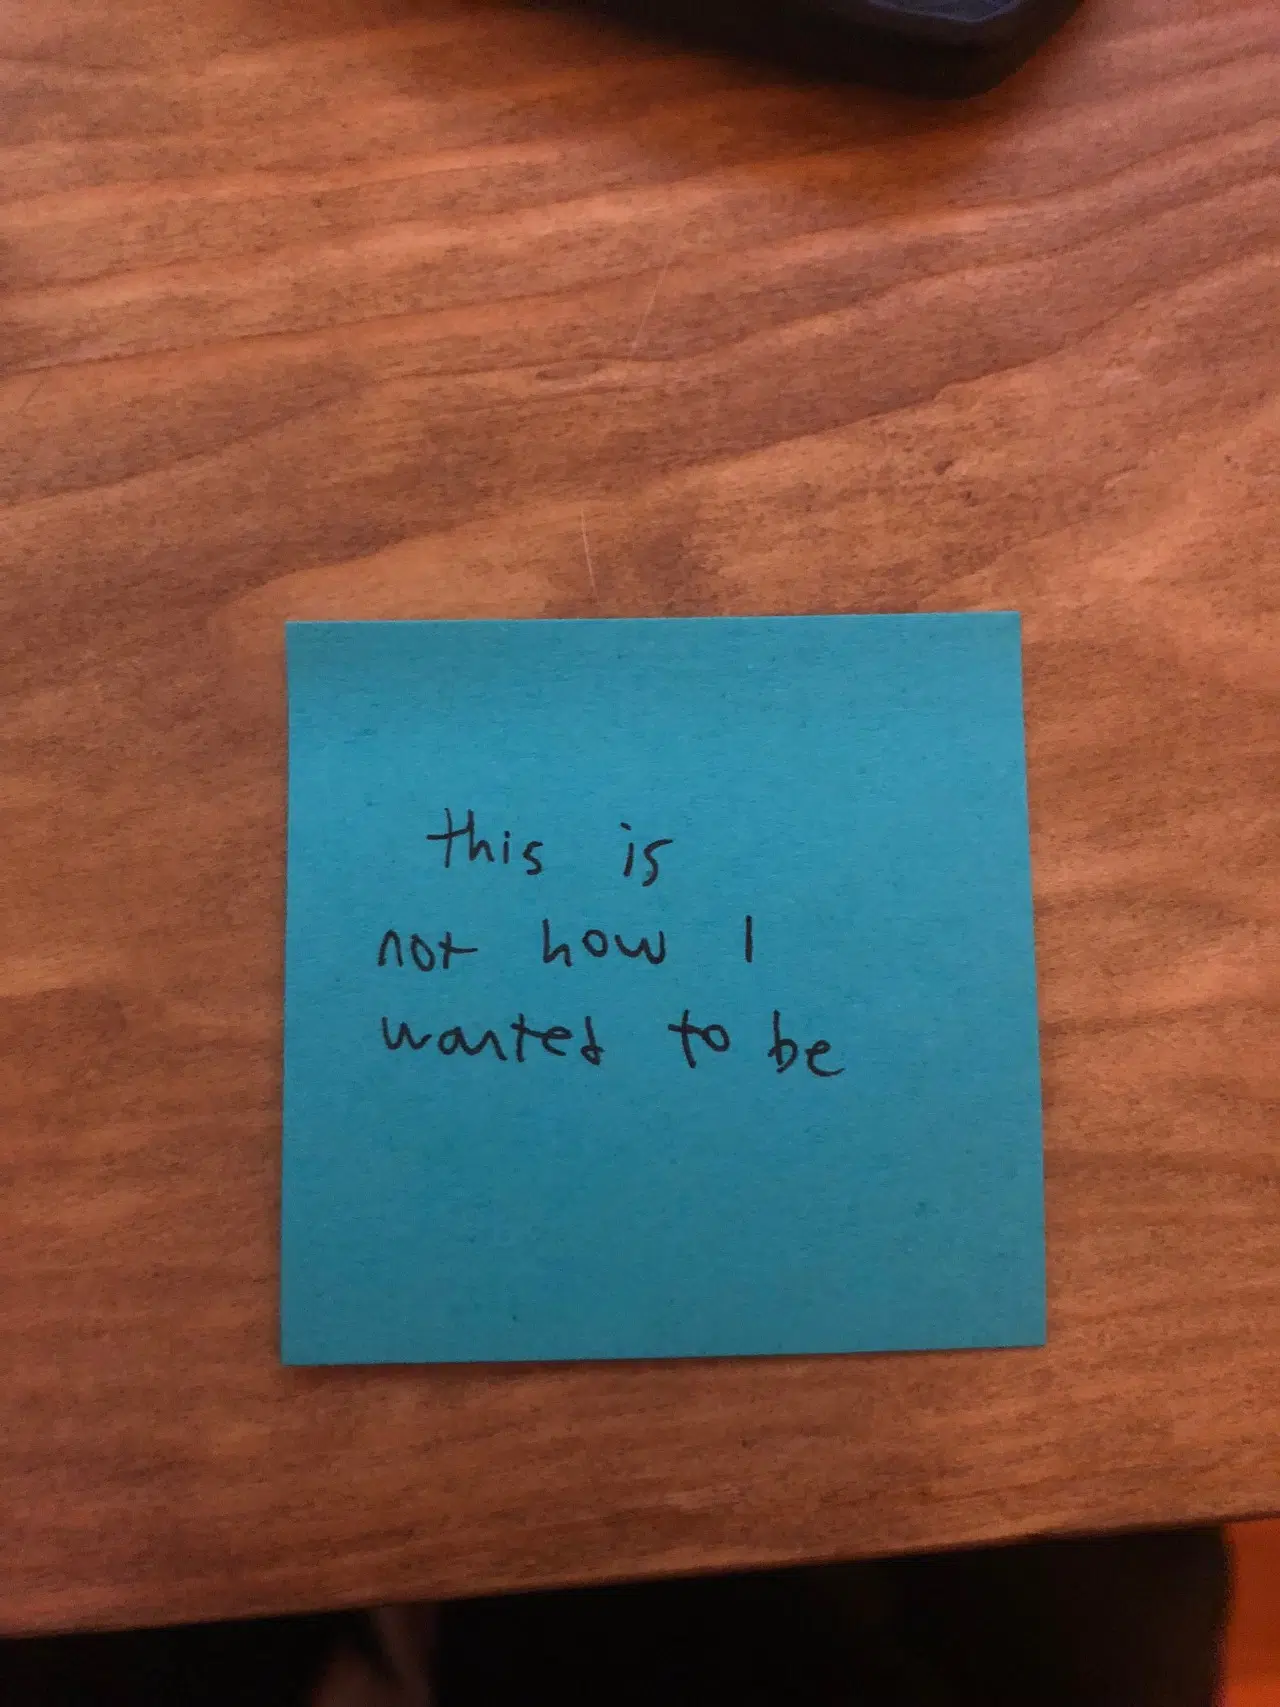 this is
not how I
wanted to be